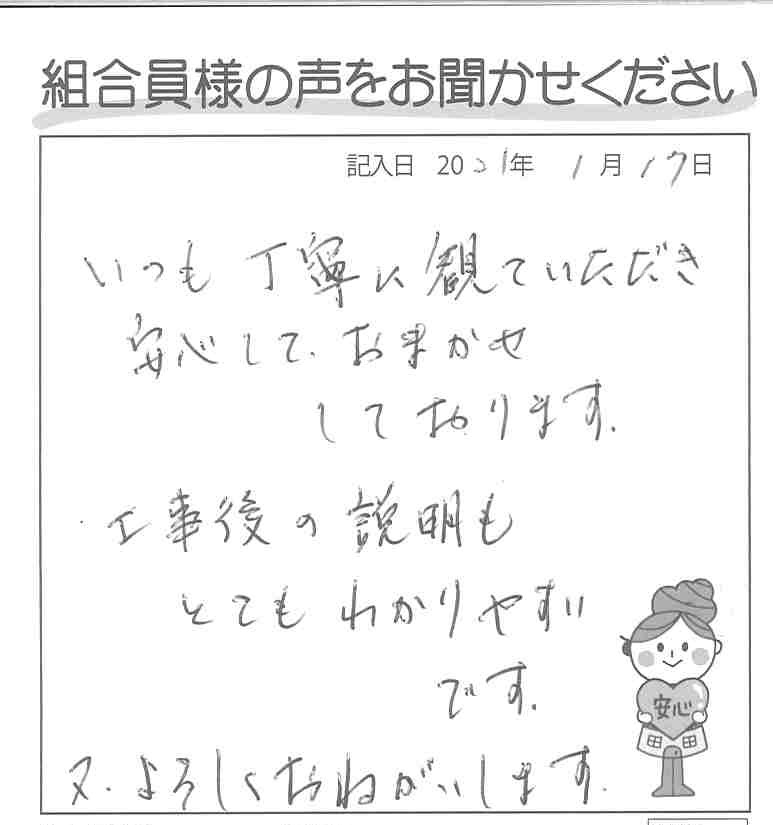 組合員様の声をお聞かせください
記入日 2021年 1月17日
いつも丁寧に観ていただき
安心して、おまかせ
しております.
工事後の説明も
とてもわかりやすい
です.
又、よろしくおねがいします.
安心